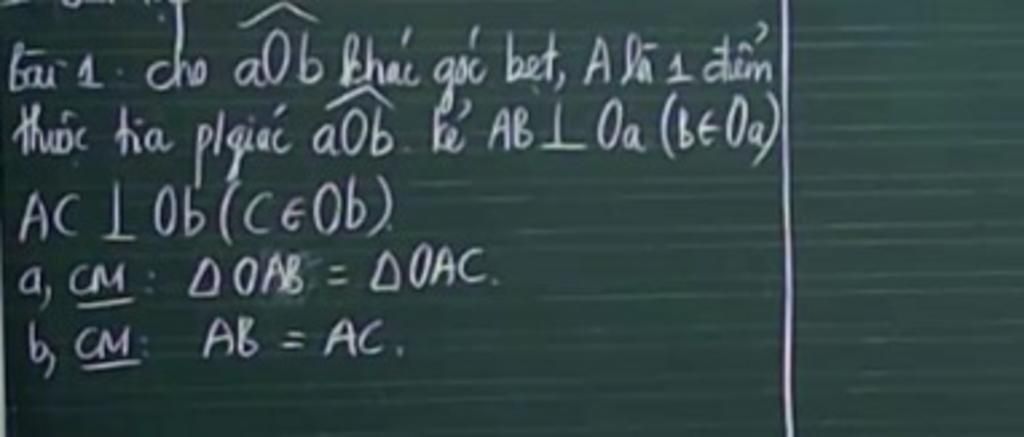 bài 1. cho aOb khác góc bẹt, A là 1 điểm
thuộc tia p/giác aOb. kẻ AB ⊥ Oa (b∈Oa)
AC ⊥ Ob (C∈Ob)
a, CM: Δ OAB = Δ OAC.
b, CM: AB = AC.